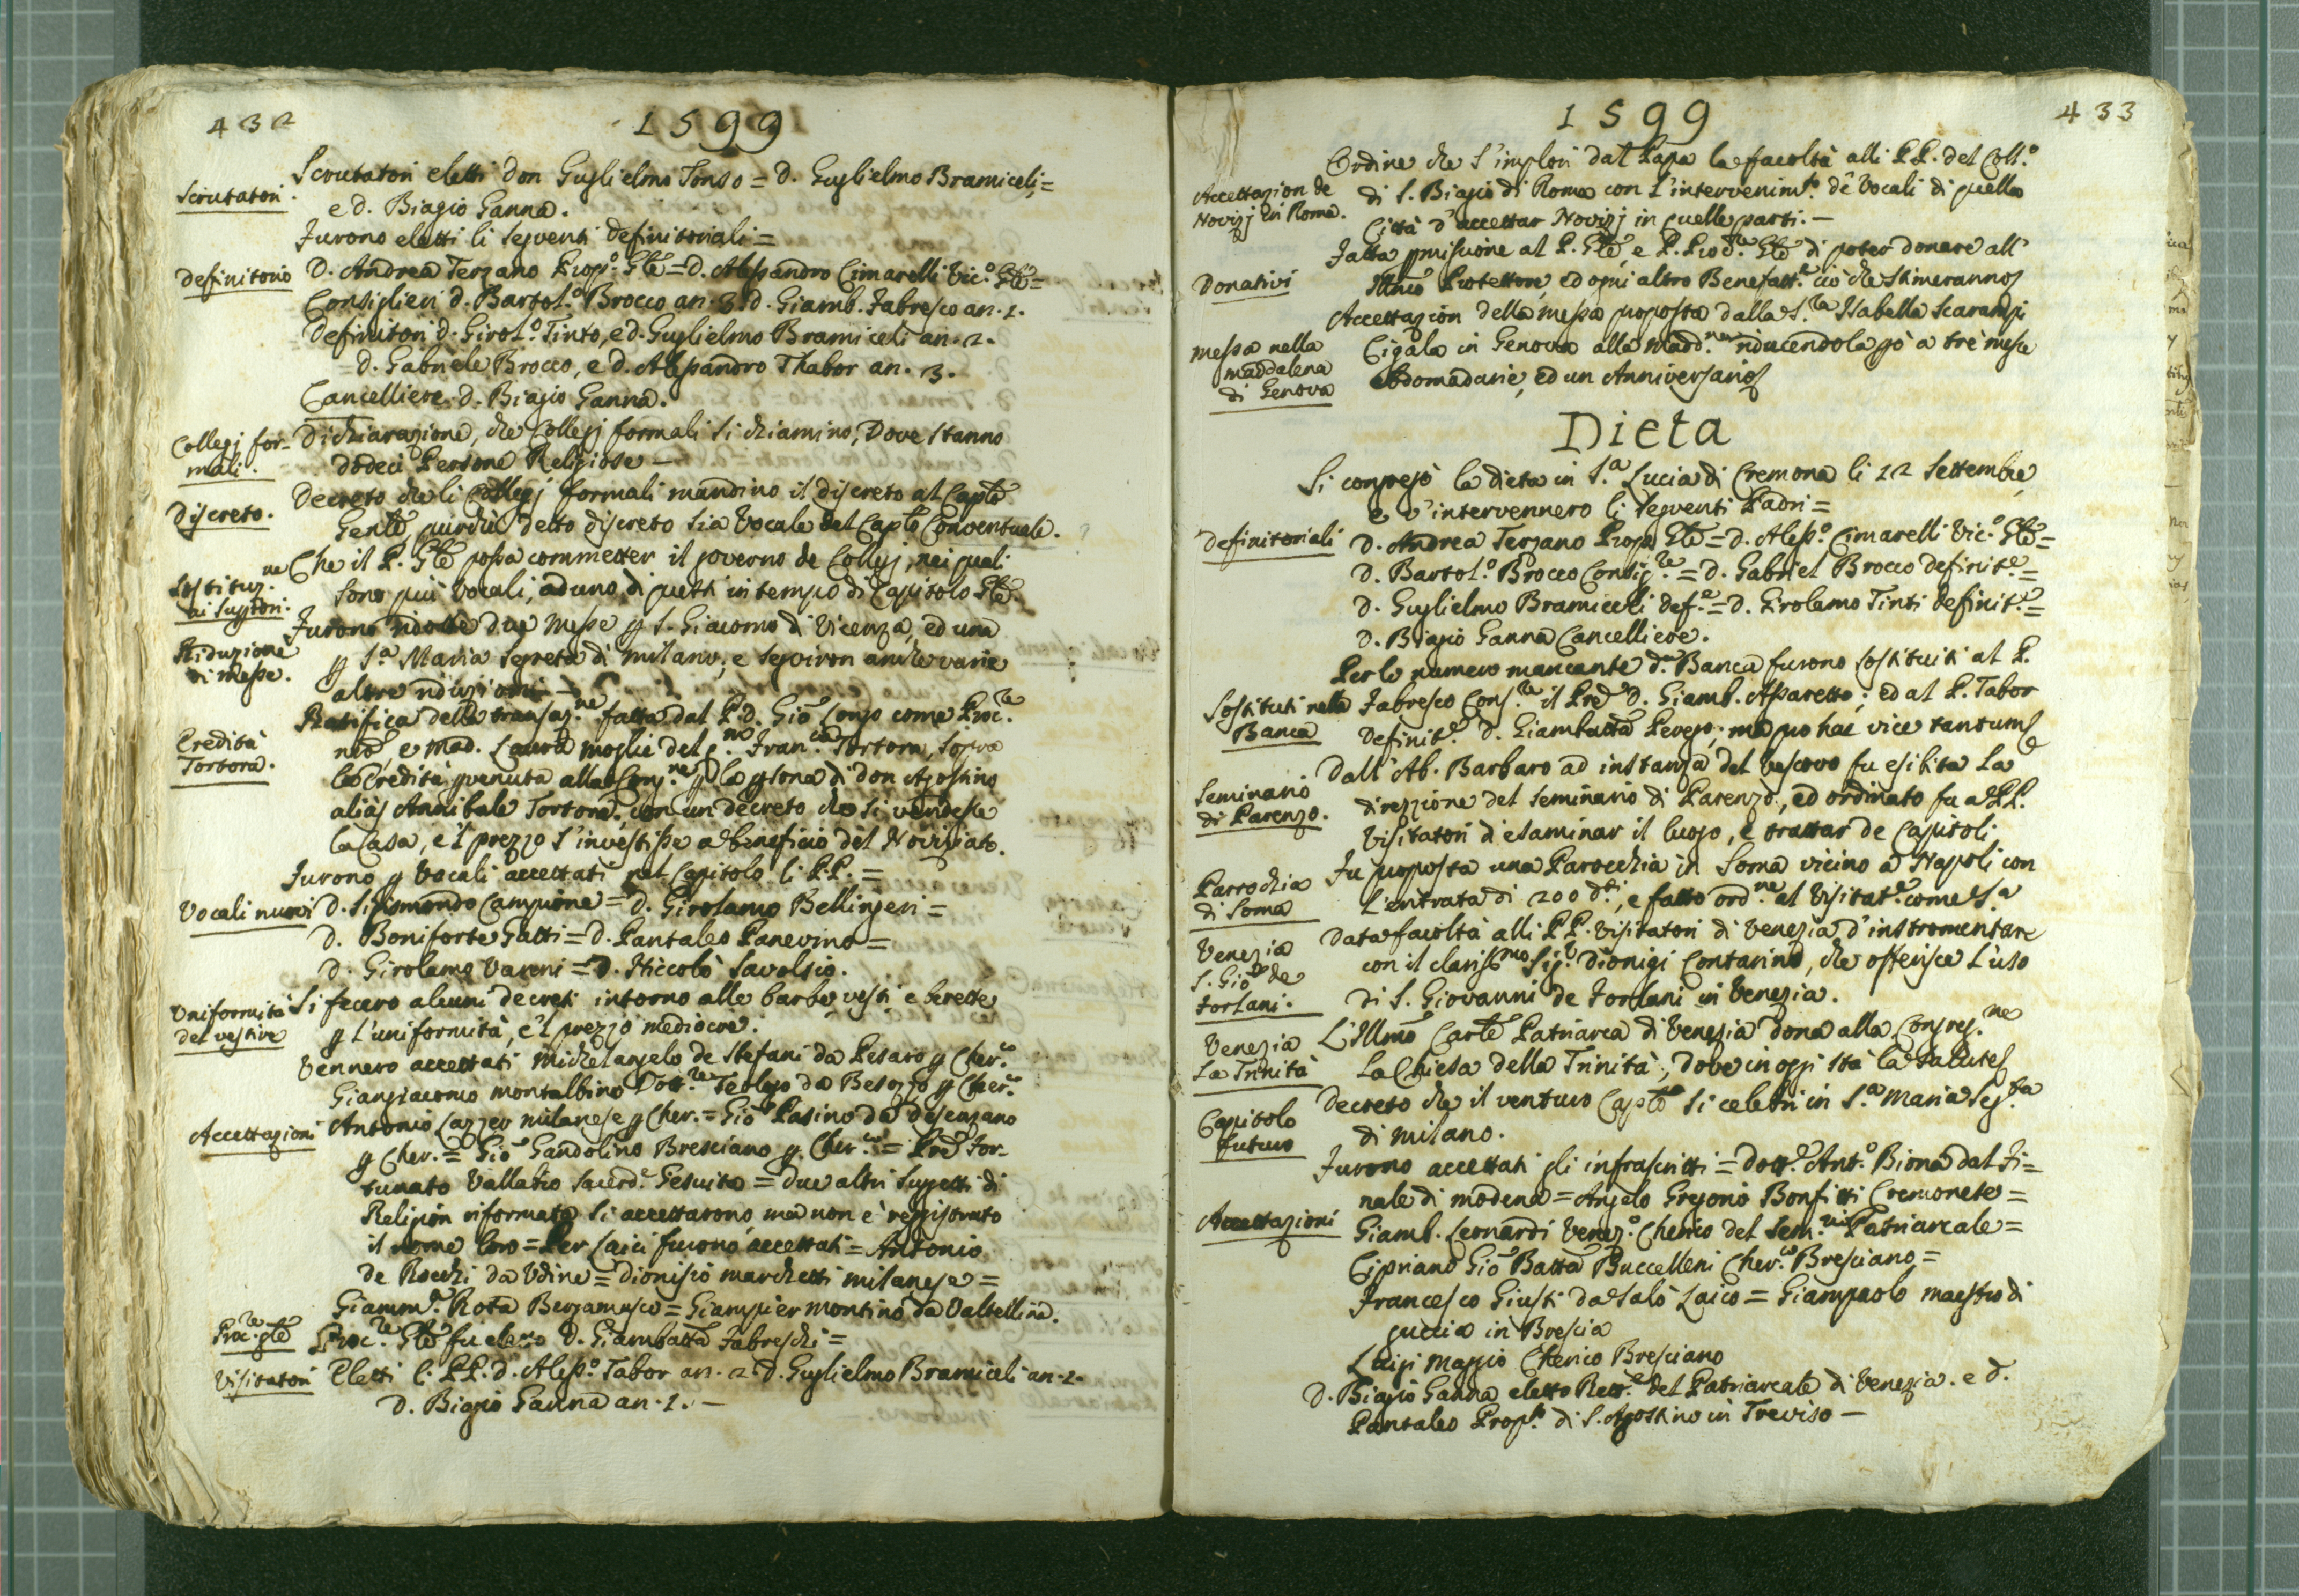 432
1599
Scrutatori eletti Don Guglielmo Tonso = D. Guglielmo Bramiceli =
Scrutatori.
e d. Biagio Ganna.
Furono eletti li seguenti definitoriali =
definitorio
D. Andrea Terzano Prop.o Gle = D. Alessandro Cimarelli Vic.o Gle =
Consiglieri d. Bartol.o Brocco an. 3. d. Giamb. Fabresco an. 1.
definitori d. Girol.o Tinto, e d. Guglielmo Bramiceli an. 2.
= D. Gabriele Brocco, e D. Alessandro Thabor an. 3.
Cancelliere d. Biagio Ganna.
Collegj for-
mali.
Dichiarazione, che Collegj formali si chiamino, Dove stanno
dodeci Persone Religiose —
Discreto.
Decreto che li Collegj formali mandino il discreto al Caplo
Genle, purchè detto discreto sia Vocale del Caplo Conventuale.
Sostituz.ne
ai Supriori.
Che il P. Gle possa commetter il governo de Collegj, nei quali
sono più Vocali, ad uno di questi in tempo di Capitolo Gle.
Riduzione
di Messe.
Furono ridotte due Messe p S. Giacomo di Vicenza, ed una
p S.a Maria Segreta di Milano, e seguiron anche varie
altre riduzioni —
Eredità
Tortora.
Ratifica della transaz.ne fatta dal P. D. Gio Longo come Proc.re
nro, e Mad. Laura moglie del q.m Fran.co Tortora, sopra
la Eredità pvenuta alla Cong.ne p la psona di don Agostino
aliàs Annibale Tortora, con un decreto che si vendesse
la Casa, e 'l prezzo s'investisse a beneficio del Noviziato.
Furono p Vocali accettati nel Capitolo li PP. =
Vocali nuovi
D. Sigismondo Campione = D. Girolamo Bellingeri =
D. Boniforte Gatti = D. Pantaleo Panevino =
D. Girolamo Vareni = D. Niccolò Savolsio.
Uniformità
del vestire
Si fecero alcuni decreti intorno alle barbe, vesti e berette
p l'uniformità, e 'l prezzo mediocre.
Vennero accettati Michelangelo de Stefani da Pesaro p Cher.co
Giangiacomo Montalbino Dott.re Teologo da Besozzo p Cher.co
Accettazioni
Antonio Lazzer milanese p Cher. = Gio Pasino da desenzano
p Cher. = Gio Gandolino Bresciano p Cher.co = Pre For-
tunato Vallatio Sacerd.e Gesuita = due altri Suggetti di
Religion riformata si accettarono, ma non è registrato
il nome loro = Per Laici furono accettati = Antonio
de Rocchi da Udine = Dionisio Marchetti milanese =
Giamm.a Rota Bergamasco = Giampier Montino da Valtellina.
Proc.re gle
Proc.re Gle fu eletto D. Giambatta Fabreschi =
Visitatori
Eletti li PP. d. Aless.o Tabor an. 2. d. Guglielmo Bramiceli an. 2.
D. Biagio Ganna an. 1. —
1599
433
Accettazion de
Novizj in Roma.
Ordine che s'implori dal Papa la facoltà alli PP. del Coll.o
di S. Biagio di Roma con l'intervenim.to de Vocali di quella
Città d'accettar Novizj in quelle parti. —
Donativi
Fatta pmisione al P. Gle, e P. Proc.re Gle di poter donare all'
Illmo Protettore, ed ogni altro Benefatt.e ciò che stimeranno
Messa nella
Maddalena
di Genova
Accettazion della messa proposta dalla S.ra Isabella Scarampi
Cigala in Genova alla Madd.na riducendola pò a trè messe
ebdomadarie, ed un Anniversario
Dieta
Si congregò la dieta in S.a Lucia di Cremona li 12 Settembre
e v'intervennero li seguenti Padri =
Definitoriali
D. Andrea Terzano Propo Gle = D. Aless.o Cimarelli Vic.o Gle =
D. Bartol.o Brocco Consig.re = D. Gabriel Brocco definit.e =
D. Guglielmo Bramiceli def.e = D. Girolamo Tinti definit.e =
D. Biagio Ganna Cancelliere.
Sostituti nella
Banca
Per lo numero mancante d. Banca furono sostituiti al P.
Fabresco Cons.re il Pre D. Giamb. Assaretto; ed al P. Tabor
definit.e D. Giambatta Perego; ma pro hac vice tantum
Seminario
di Parenzo.
Dall'Ab. Barbaro ad instanza del Vescovo fu esibita la
direzzione del Seminario di Parenzo, ed ordinato fu a PP.
Visitatori d'esaminar il luogo, e trattar de Capitoli
Parrochia
di Soma
Fu proposta una Parocchia in Soma vicino a Napoli con
l'entrata di 200 d.ti, e fatto ord.ne al Visitat.e come S.a
Venezia
S. Gio de
Forlani.
Data facoltà alli PP. Visitatori di Venezia d'instromentare
con il clariss.mo Sig.r Dionigi Contarino, che offerisce l'uso
di S. Giovanni de Forlani in Venezia.
Venezia
La Trinità
L'Illmo Carle Patriarca di Venezia dona alla Congreg.ne
La Chiesa della Trinità, dove in oggi stà la Salute
Capitolo
futuro
Decreto che il venturo Caplo si celebri in S.a Maria Seg.ta
di Milano.
Furono accettati gli infrascritti = Dott.e Ant.o Biona dal Fi=
nale di Modena = Angelo Gregorio Bonfitti Cremonese =
Accettazioni
Giamb. Leonardi Venez.o Cherico del Sem.rio Patriarcale =
Cipriano Gio Batta Buccelleni Cher.co Bresciano =
Francesco Giusti da Salò Laico = Giampaolo maestro di
guccia in Brescia
Luigi Maggio Cherico Bresciano
D. Biagio Ganna eletto Rett.e del Patriarcale di Venezia. e D.
Pantaleo Prop.to di S. Agostino in Treviso —